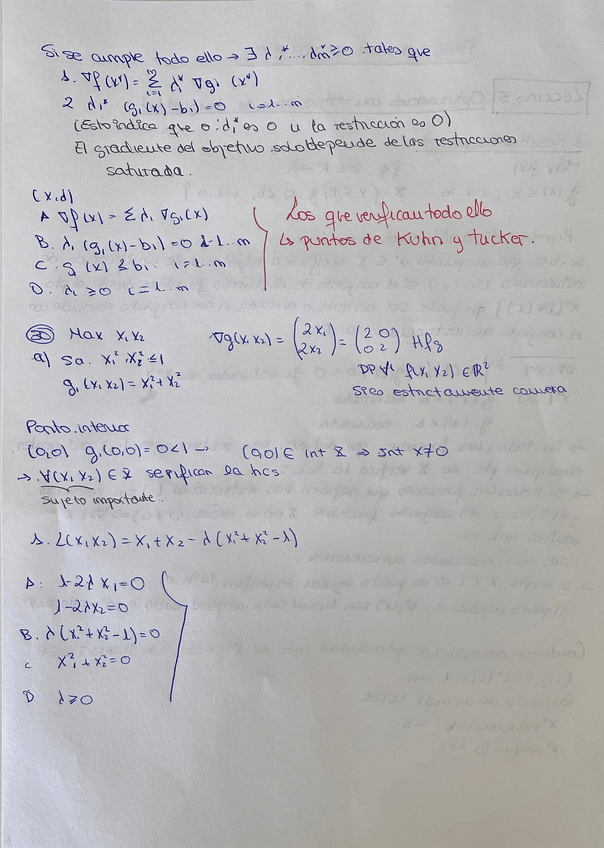 Si se cumple todo ello → ∃ λ₁*... λm* ≥ 0 tales que
1. ∇f(x*) = Σ λ* ∇gᵢ (x*)
2 λᵢ* (gᵢ(x) - bᵢ) = 0 i = 1..m
(Esto indica que o λᵢ* es 0 u la restricción es 0)
El gradiente del objetivo solo depende de las restricciones
saturada.
(x, d)
A ∇f(x) = Σ λᵢ ∇gᵢ(x)
B. λᵢ (gᵢ(x) - bᵢ) = 0 i-1...m
C. gᵢ(x) ≤ bᵢ i = 1...m
D. λᵢ ≥ 0 i = 1...m
Los que verifican todo ello
↳ puntos de Kuhn y tucker.
Max x₁ x₂
a) s.a. x₁² x₂² ≤ 1
g₁ (x₁ x₂) = x₁² + x₂²
∇g(x₁ x₂) = (2x₁ 2x₂) = (2 0 0 2) Hfg
DP ∀ f(x₁ x₂) ∈ ℝ²
Si es estrictamente convexa
Punto interior
(0,0) g₁(0,0) = 0 < 1 → (0,0) ∈ int X ⇒ Int X ≠ 0
→ ∀(x₁, x₂) ∈ X se pifican la hcs
sujeto importante.
1. L(x₁ x₂) = x₁ + x₂ - λ (x₁² + x₂² - 1)
A: 1 - 2λ x₁ = 0
1 - 2λx₂ = 0
B. λ (x₁² + x₂² - 1) = 0
C x₁² + x₂² = 0
D λ ≥ 0